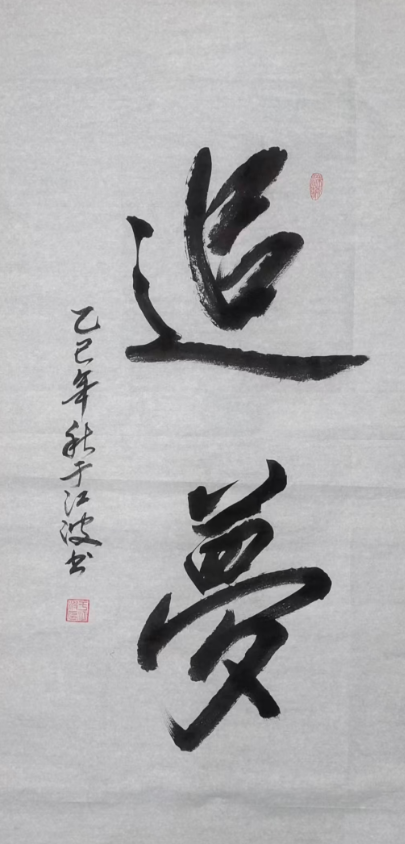 追夢
乙巳年秋于江波书